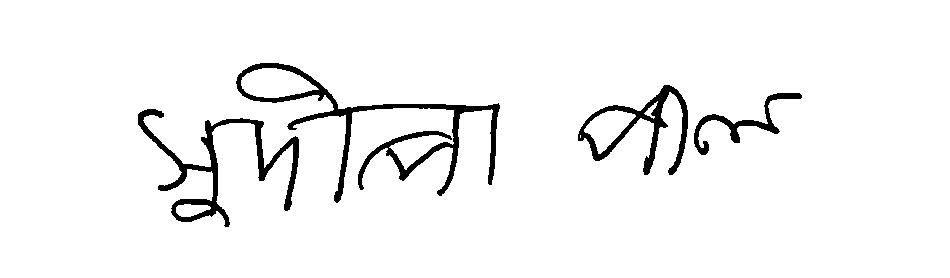 সুদীপ্তা পাল